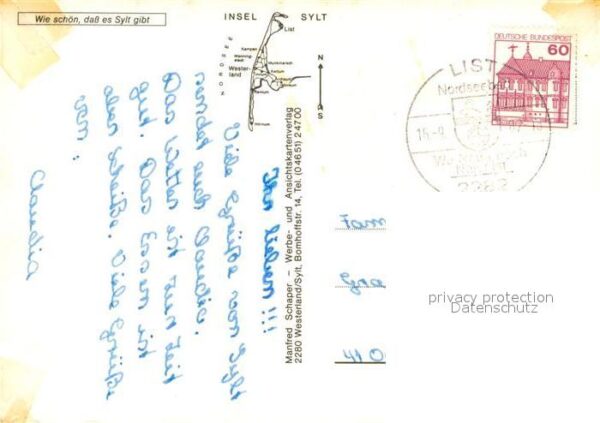 Wie schön, daß es Sylt gibt
INSEL SYLT
NORDSEE
List
Kampen
Wenning-
stedt
Wester-
land
Munkmarsch
Keitum
Hörnum
N
S
DEUTSCHE BUNDESPOST
60
LIST
Nordseebad
2282
Manfred Schaper – Werbe- und Ansichtskartenverlag
2280 Westerland/Sylt, Bomhoffstr. 14, Tel. (04651) 24700
Ihr Lieben!!!
Viele Grüße von Sylt
sendet euch Claudia.
Das Wetter ist zur Zeit
gut. Das Essen ist
aber scheiße. Viele Grüße
von:
Claudia
Fam
privacy protection
Datenschutz